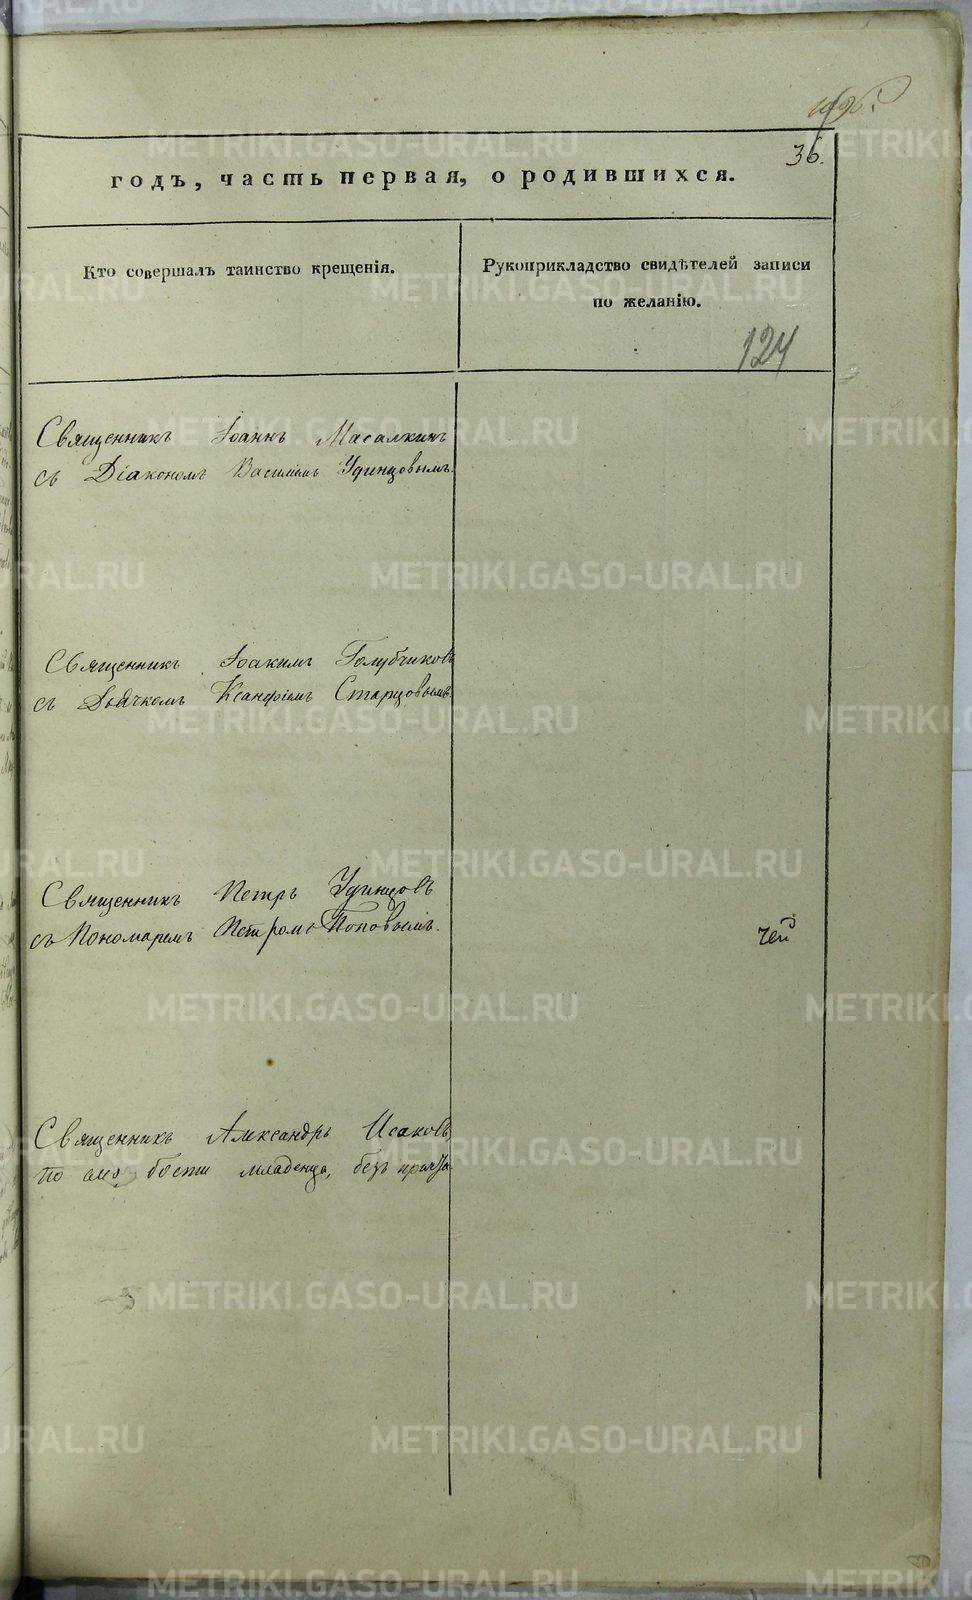 36.
годъ, часть первая, о родившихся.
Кто совершалъ таинство крещенія.
Рукоприкладство свидѣтелей записи
по желанію.
124
Священникъ Іоаннъ Масалкинъ
съ Діакономъ Василіемъ Удинцовымъ.
Священникъ Іоакимъ Голубчиковъ
съ Дьячкомъ Ксанфіемъ Старцовымъ.
Священникъ Петръ Удинцовъ
съ Пономаремъ Петромъ Поповымъ.
Священникъ Александръ Исаковъ,
по слабости младенца, безъ причта
METRIKI.GASO-URAL.RU